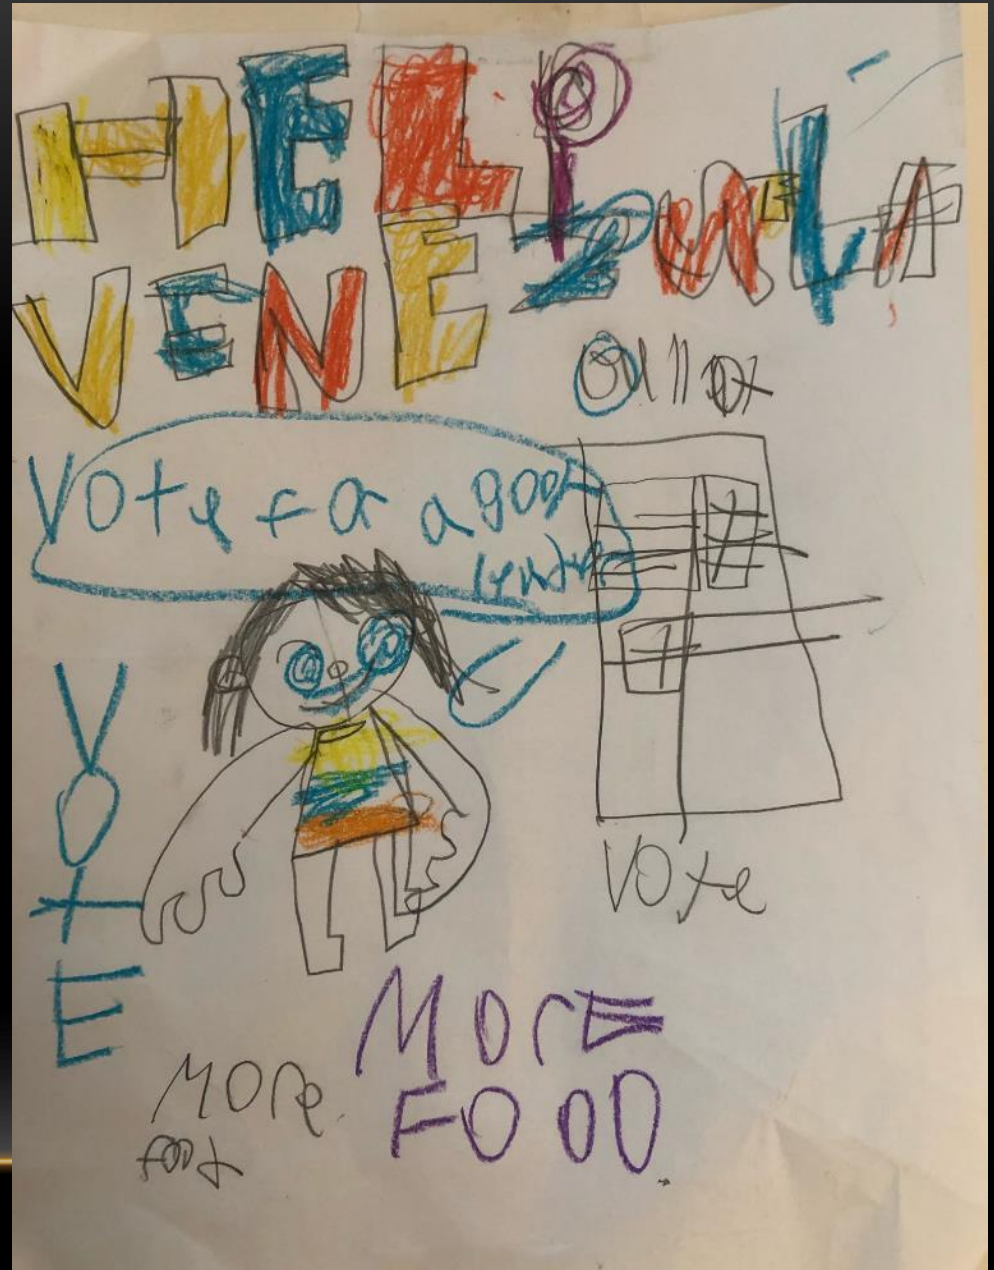 HELP
VENEZuELA
BallOt
VOte FOr a good
leader
VOTE
VOte
MORE
FOOD
MORe
Food